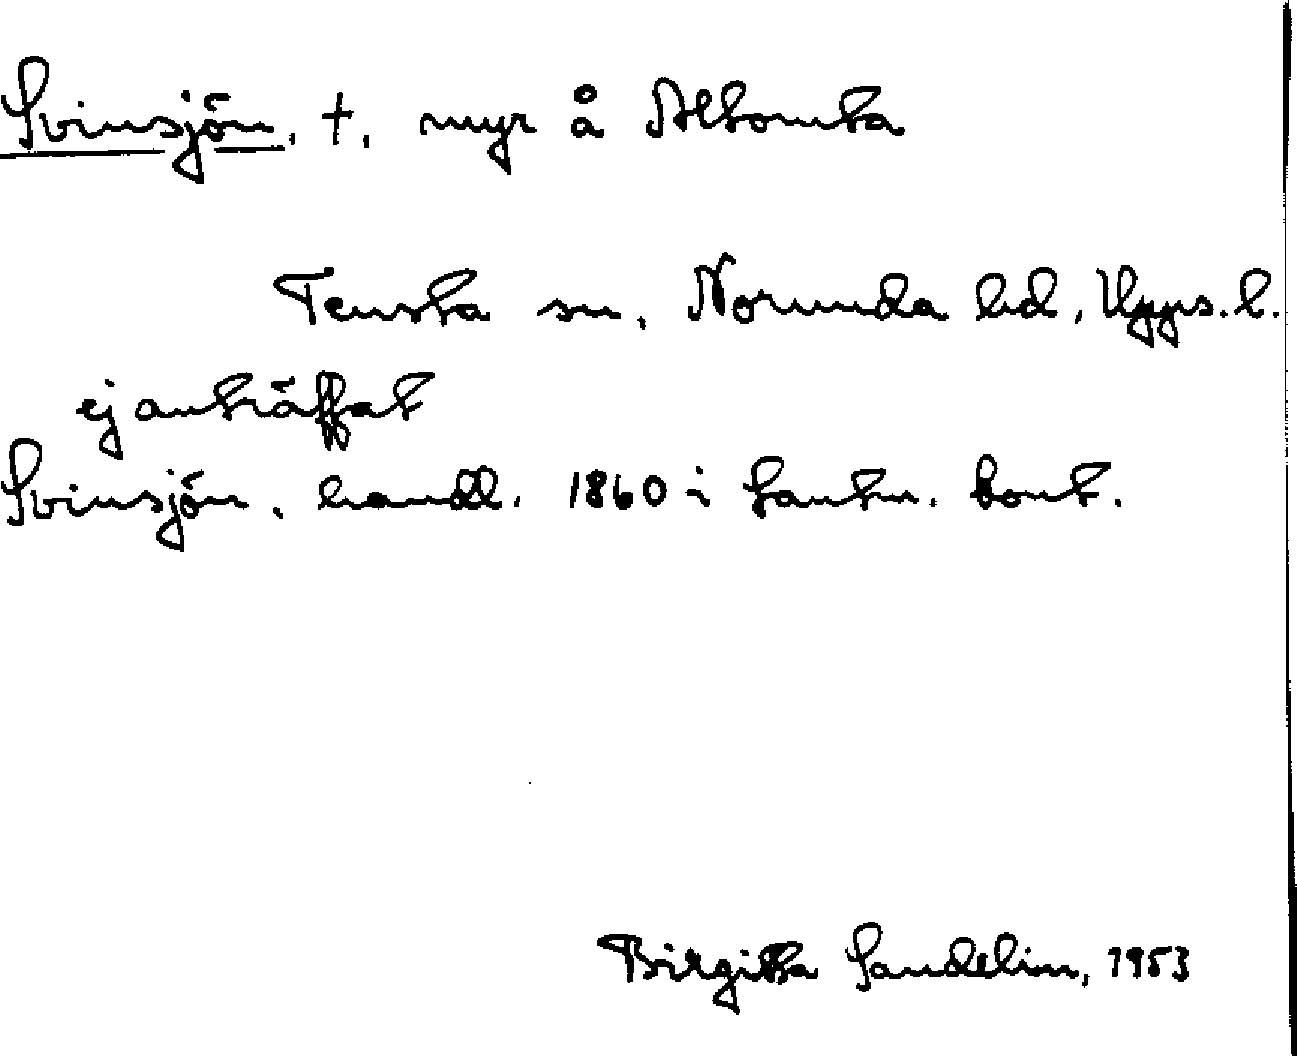 Svinsjön, †, myr å Altomta
Tensta sn, Norunda hd, Upps. l.
ej anträffat
Svinsjön, handl. 1860 i Lantm. kont.
Birgitta Sandelin, 1953